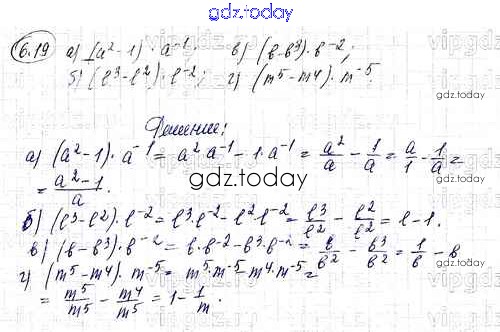 gdz.today
6.19 а) (a²-1)·a⁻¹; в) (b-b³)·b⁻²;
б) (l³-l²)·l⁻²; г) (m⁵-m⁴)·m⁻⁵
gdz.today
Решение:
а) (a²-1)·a⁻¹ = a²·a⁻¹-1·a⁻¹ = a²/a - 1/a = a/1 - 1/a =
= a²-1/a.
gdz.today
б) (l³-l²)·l⁻² = l³·l⁻²-l²·l⁻² = l³/l² - l²/l² = l-1.
в) (b-b³)·b⁻² = b·b⁻²-b³·b⁻² = b/b² - b³/b² = 1/b - b
г) (m⁵-m⁴)·m⁻⁵ = m⁵·m⁻⁵-m⁴·m⁻⁵ =
= m⁵/m⁵ - m⁴/m⁵ = 1 - 1/m.
gdz.today